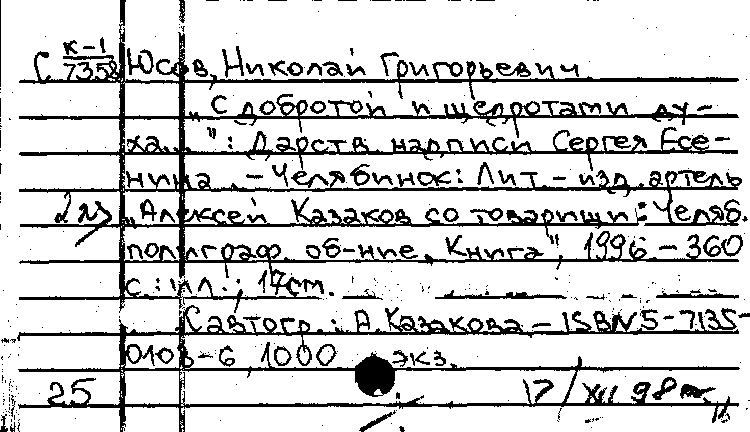 С К-1
7358 Юсов, Николай Григорьевич.
„С добротой и щедротами ду-
ха...": Дарств. надписи Сергея Есе-
нина. - Челябинск: Лит.- изд. артель
2 экз „Алексей Казаков со товарищи: Челяб.
полиграф. об-ние „Книга", 1996 - 360
с.: ил.; 17см.
С автогр.: А. Казакова - ISBN 5-7135-
0108-6, 1000 экз.
25 17/XII 98